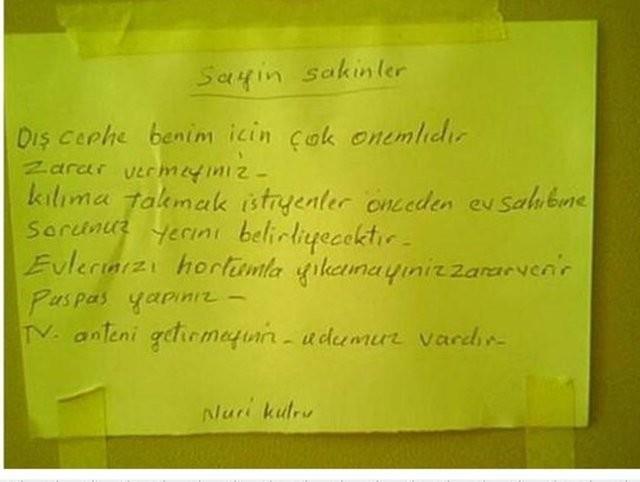 Sayin sakinler
Dış cephe benim icin çok onemlidir
Zarar vermeyiniz -
kılıma takmak istiyenler önceden ev sahibine
sorunuz yerini belirliyecektir -
Evlerinizi hortumla yıkamayiniz zarar verir
Paspas yapınız -
TV. anteni getirmeyiniz - udumuz vardır -
Nuri